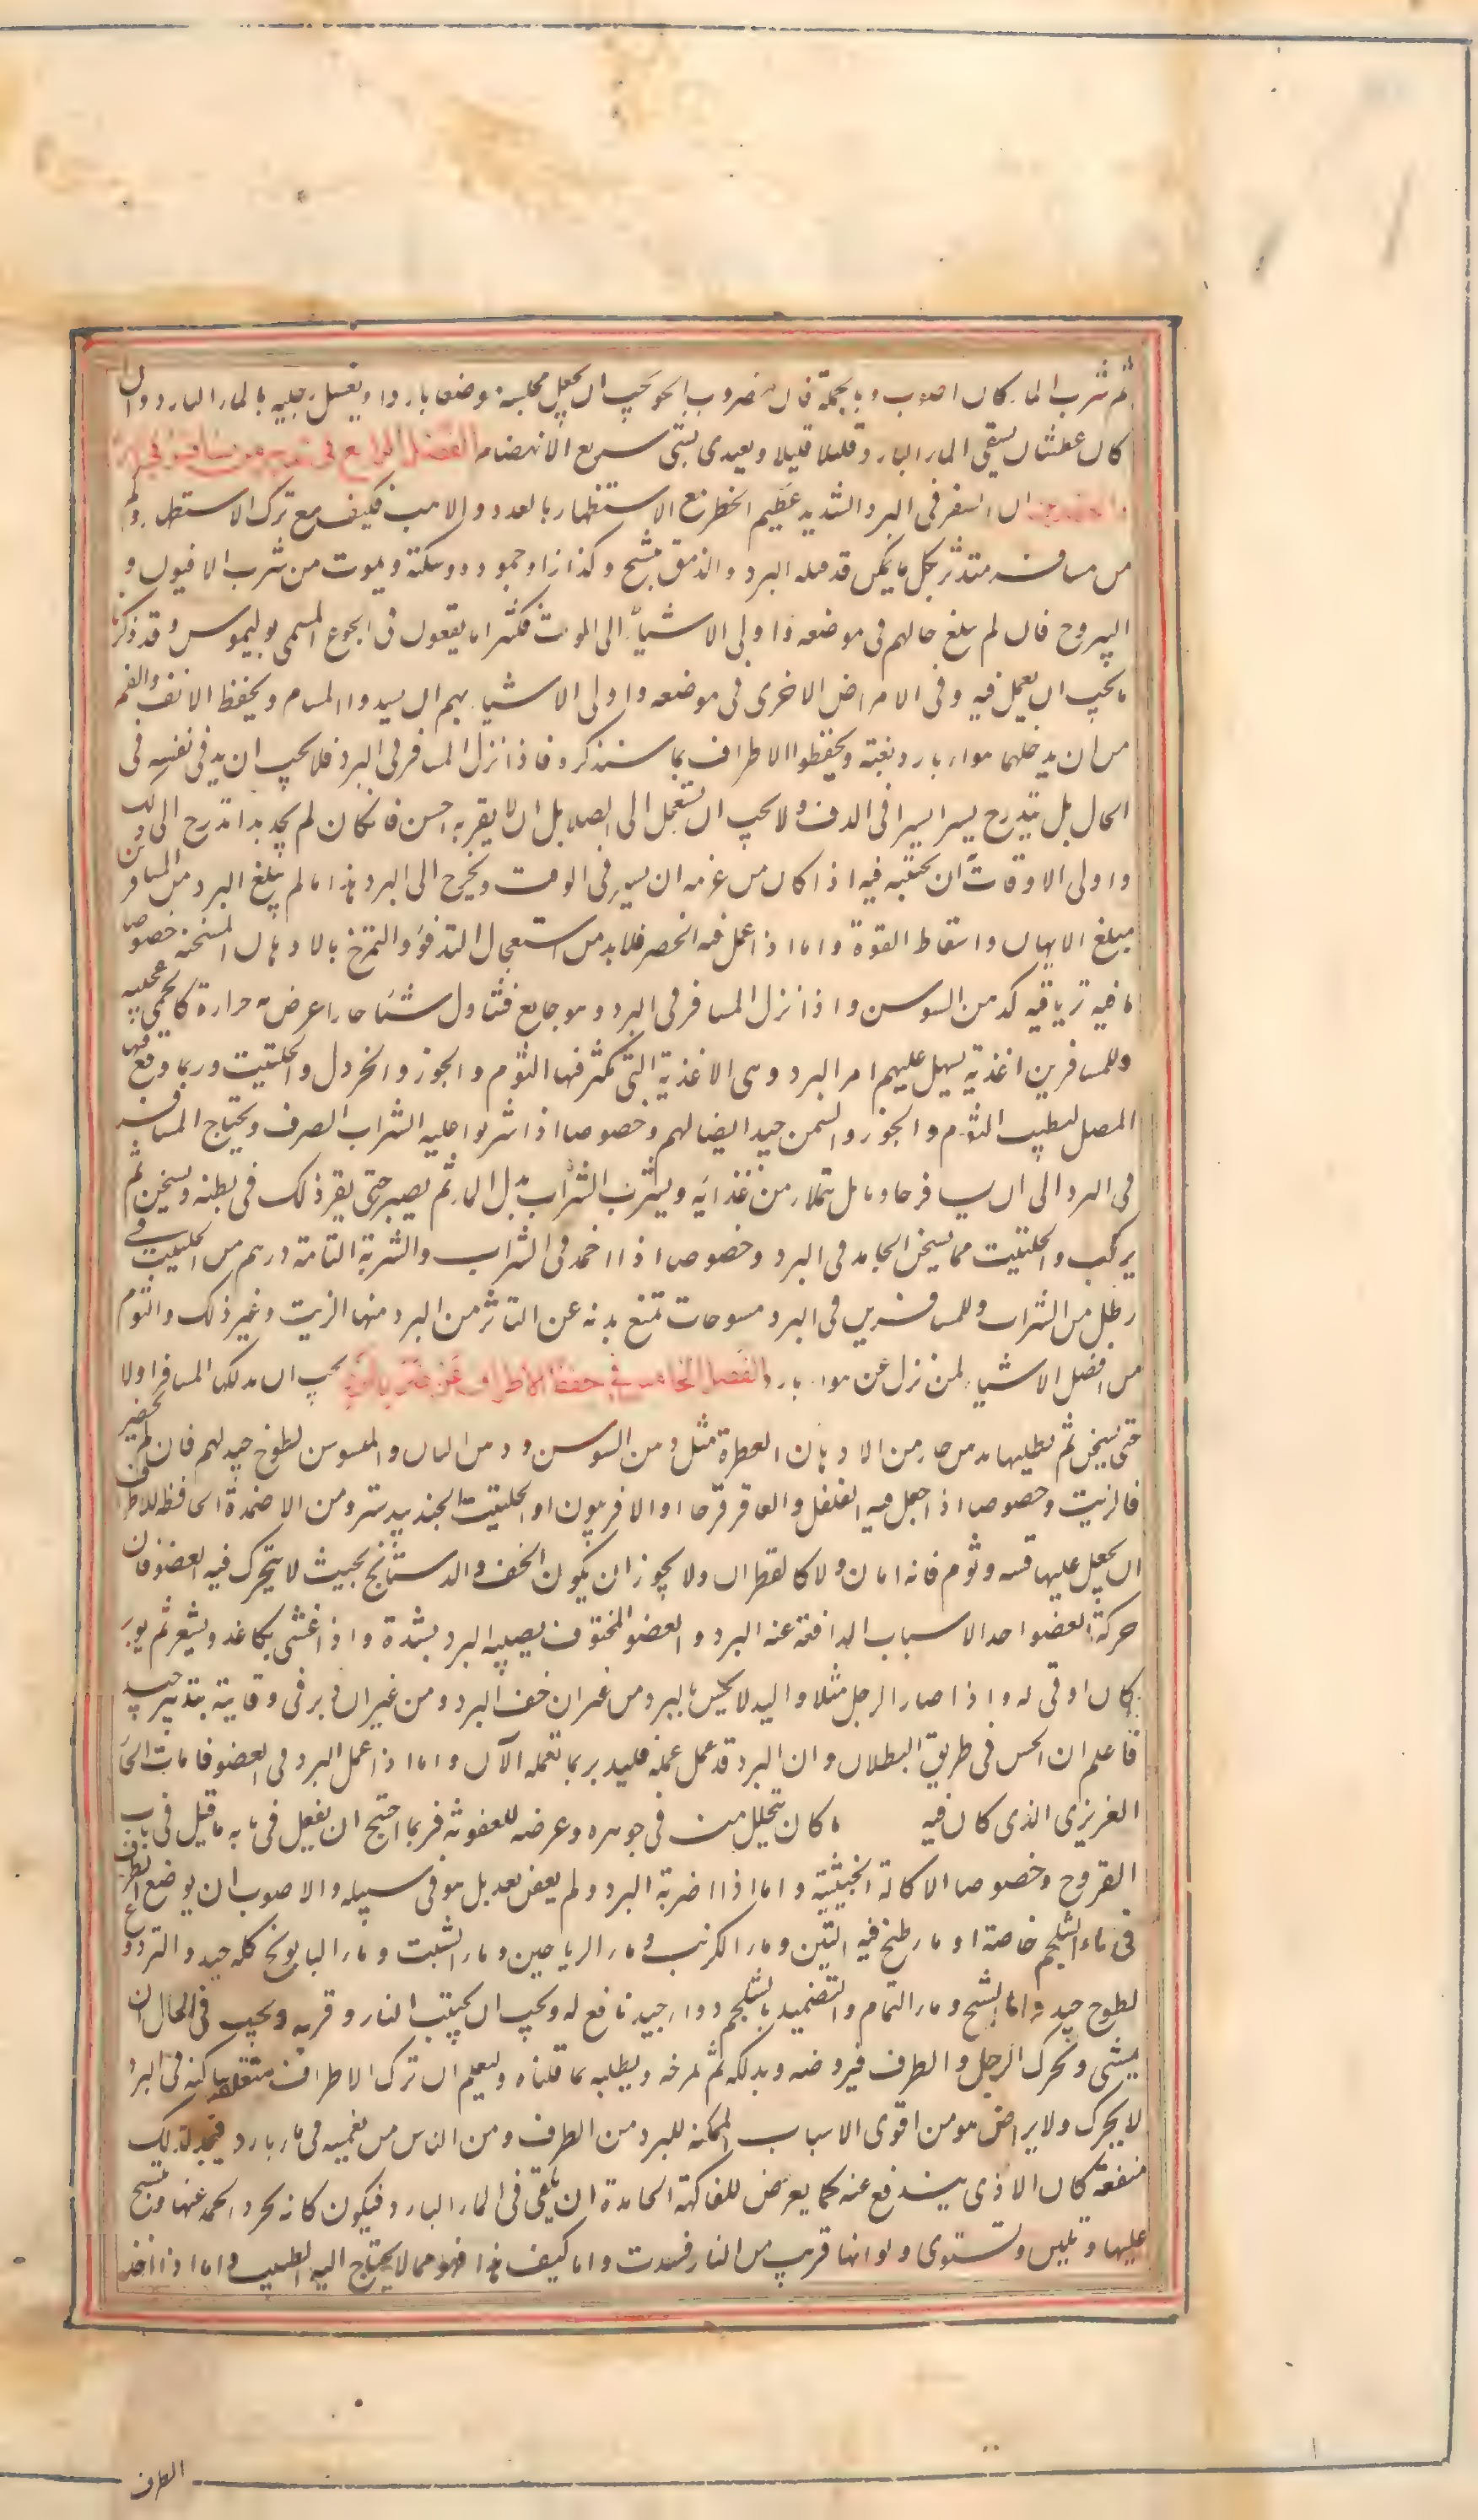 ثم شرب الماء كان اصوب وبالجملة فان مضروب الحر يجب ان يجعل مجلسه موضعا باردا ويغسل رجليه بالماء البارد وان
كان عطشان يسقى الماء البارد قليلا قليلا ويغدى بشئ سريع الانهضام الفصل الرابع فى تدبير من يسافر فى البرد
ان السفر فى البرد الشديد عظيم الخطر مع الاستظهار بالعدد والاهب فكيف مع ترك الاستظهار وكم
من مسافر متدثر بكل ما يمكن قد قتله البرد والدمق بتشنج وكزاز او جمود وسكتة ويموت من شرب الافيون و
اليبروح فان لم يبلغ حالهم فى موضعه واولى الاشياء الى الموت فكثيرا ما يقعون فى الجوع المسمى بوليموس وقد ذكرنا
ما يجب ان يعمل فيه وفى الامراض الاخرى فى موضعه واولى الاشياء بهم ان يسدوا المسام ويحفظ الانف والفم
من ان يدخلهما هواء بارد بغتة ويحفظوا الاطراف بما سنذكره فاذا نزل المسافر فى البرد فلا يجب ان يدفى نفسه فى
الحال بل يتدرج يسيرا يسيرا فى الدف ولا يجب ان يستعجل الى الصلا بل ان لا يقربه احسن فان كان لم يجد بدا تدرج الى ذلك
واولى الاوقات ان يجتنبه فيه اذا كان من عزمه ان يسير فى الوقت ويخرج الى البرد هذا ما لم يبلغ البرد من المسافر
مبلغ الايهان واسقاط القوة واما اذا عمل فيه الخصر فلا بد من استعجال التدفؤ والتمرخ بالادهان المسخنة خصوصا
ما فيه ترياقيه كدهن السوسن واذا نزل المسافر فى البرد وهو جايع فتناول شيئا حارا عرض له حرارة كالحمى عجيبه
وللمسافرين اغذية يسهل عليهم امر البرد وهى الاغذية التى تكثر فيها الثوم والجوز والخردل والحلتيت وربما وقع فيها
المصل ليطيب الثوم والجوز والسمن جيد ايضا لهم وخصوصا اذا شربوا عليه الشراب الصرف ويحتاج المسافر
فى البرد الى ان يسافر خاويا بل يمتلاء من غذايه ويشرب الشراب بدل الماء ثم يصبر حتى يقر ذلك فى بطنه ويسخن ثم
يركب والحلتيت مما يسخن الجامد فى البرد وخصوصا اذا اخمد فى الشراب والشربة التامة درهم من الحلتيت فى
رطل من الشراب وللمسافرين فى البرد مسوحات تمنع بدنه عن التاثر من البرد منها الزيت وغير ذلك والثوم
من افضل الاشياء لمن نزل عن هواء بارد الفصل الخامس فى حفظ الاطراف عن ضرر البرد يجب ان يدلكها المسافر اولا
حتى يسخن ثم يطليها بدهن حار من الادهان العطرة مثل دهن السوسن ودهن البان والمسوسن لطوخ جيد لهم فان لم يحضر
فالزيت وخصوصا اذا جعل فيه الفلفل والعاقر قرحا او الافربيون او الحلتيت الجندبيدستر ومن الاضمدة الحافظة للاطراف
ان يجعل عليها قنه وثوم فانه امان ولا كالقطران ولا يجوز ان يكون الخف والدستانج بحيث لا يتحرك فيه العضو فان
حركة العضو احد الاسباب الدافعة عنه البرد والعضو المخنوق يصيبه البرد بشدة واذا غشى بكاغد ويشعر ثم يوبر
كان اوقى له واذا صار الرجل مثلا واليد لا يحس بالبرد من غير ان خف البرد ومن غير ان دبر فى وقايته بتدبير جيد
فاعلم ان الحس فى طريق البطلان وان البرد قد عمل عمله فليدبر بما تعلمه الآن واما اذا عمل البرد فى العضو فامات الحار
الغريزى الذى كان فيه ما كان يتحلل منه فى جوهره وعرضه للعفونة فربما احتج ان يفعل فى بابه ما قيل فى باب
القروح وخصوصا الاكالة الخبيثة واما اذا اضربة البرد ولم يعفن بعد بل هو فى سبيله والاصوب ان يوضع الطرف
فى ماء الثلج خاصة او ماء طبخ فيه التين وماء الكرنب وماء الرياحين وماء الشبت وماء البابونج كله جيد والتردوغ
لطوخ جيد وماء الشيح وماء النمام والتضميد بالشلجم دواء جيد نافع له ويجب ان يجتنب النار وقربه ويجب فى الحال ان
يمشى ويحرك الرجل والطرف فيروضه ويدلكه ثم يمرخه ويطليه بما قلناه وليعلم ان ترك الاطراف متعلقة ساكنة فى البرد
لا يحرك ولا يراض هو من اقوى الاسباب الممكنة للبرد من الطرف ومن الناس من يغمسه فى ماء بارد فيجد لذلك
منفعة كان الاذى يندفع عنه كما يعرض للفاكهة الجامدة ان يلقى فى الماء البارد فيكون كانه يحرر الجمد عنها ويتنسج
عليها وتلين وتستوى ولو انها قربت من النار فسدت واما كيف هذا فهو مما لا يحتاج اليه الطبيب واما اذا اخذ
الطرف